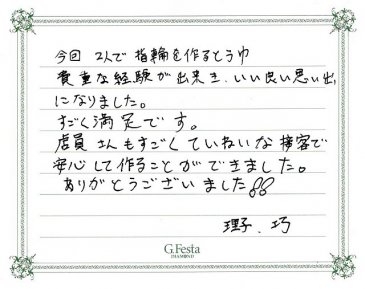 今回 2人で指輪を作るとうゆ
貴重な経験が出来き、いい良い思い出
になりました。
すごく満足です。
店員さんもすごくていねいな接客で
安心して作ることができました。
ありがとうございました!!
理子、巧
G.Festa
DIAMOND